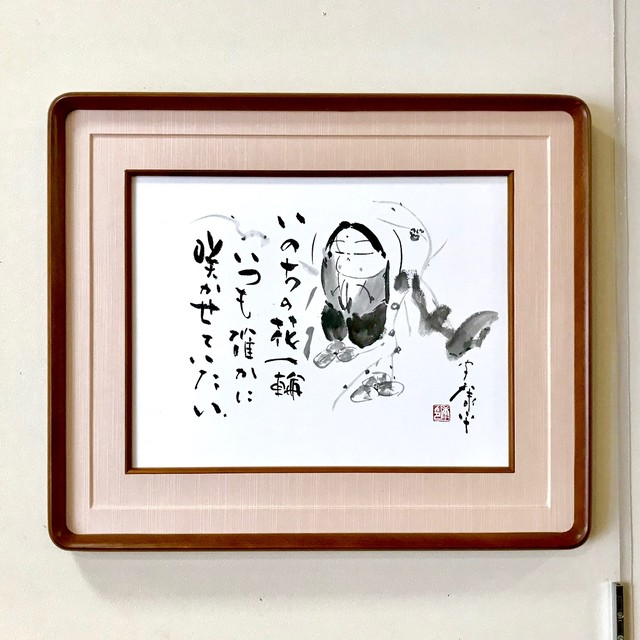 いのちの花一輪
いつも確かに
咲かせていたい